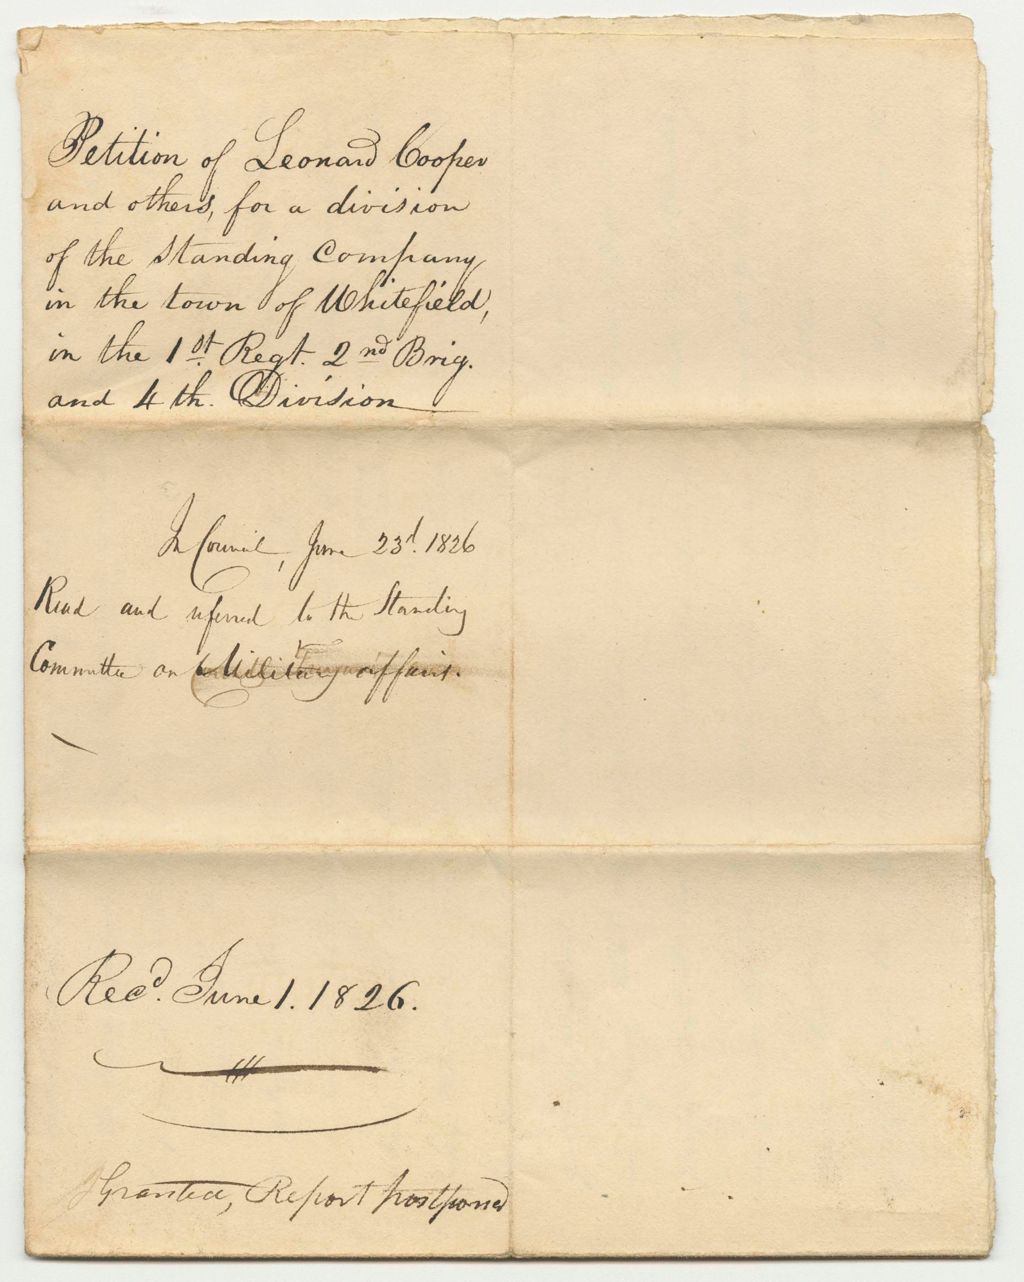 Petition of Leonard Cooper
and others, for a division
of the Standing Company
in the town of Whitefield,
in the 1st. Regt. 2nd Brig.
and 4th. Division
In Council, June 23d. 1826
Read and referred to the Standing
Committee on Military affairs.
Recd. June 1. 1826.
Granted, Report postponed